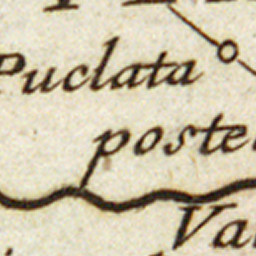 Puclata
poste
Va